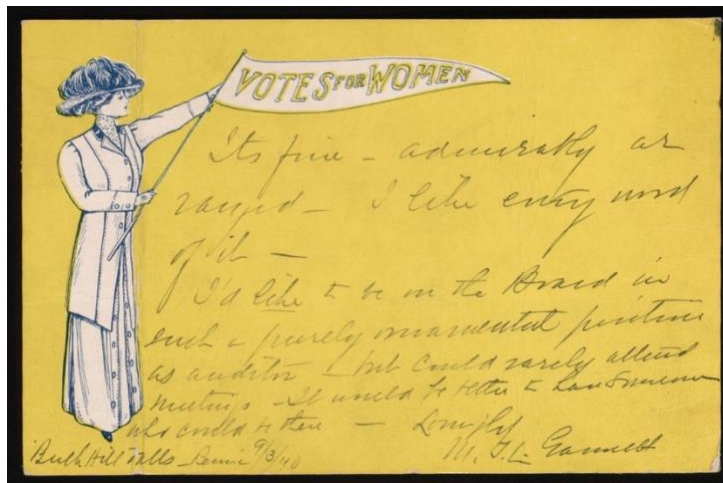 VOTES FOR WOMEN
Its fine - admirably ar
ranged - I like every word
of it -
I'd like to be on the Board in
such a purely ornamental position
as auditor - but could rarely attend
meetings - It would be better to have someone
who could be there - Lovingly
M. T. L. Gannett
Buck Hill Falls - Penn 9/3/40